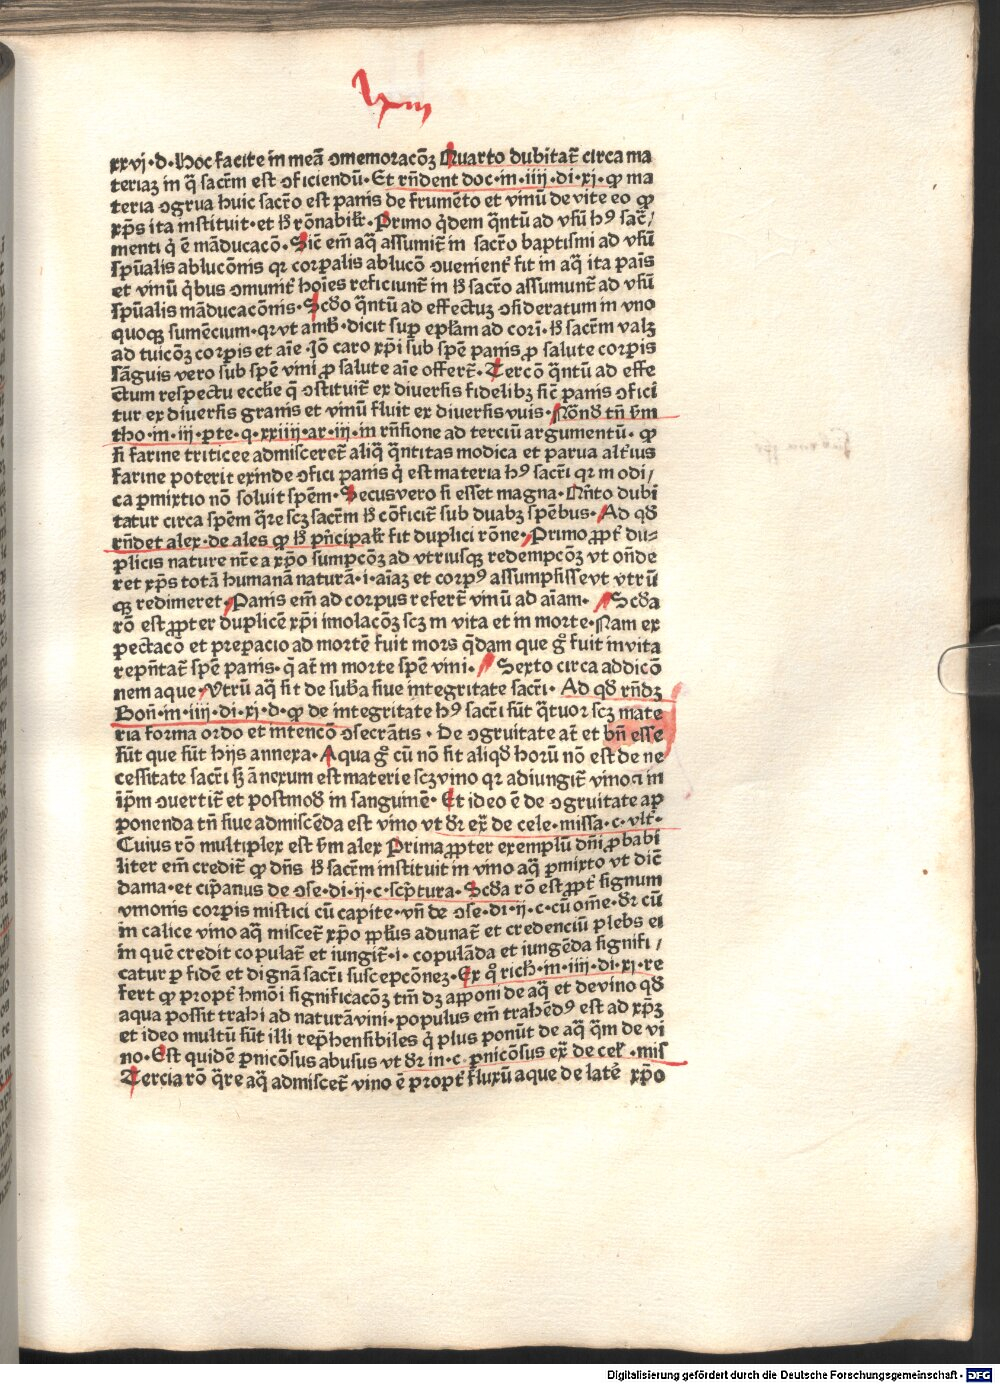 lxm
xxvj·d·Hoc facite in meā ꝯmemoracōꝫ Quarto dubitat̄ circa ma
teriaꝫ in q̄ sacr̄m est ꝯficiendū· Et rn̄dent doc·in·iiij·di·xj· ꝙ ma
teria ꝯgrua huic sacrō est panis de frumēto et vinū de vite eo ꝙ
xp̄s ita instituit·et h̄ rōnabilr̄·Primo q̇dem q̄ntū ad vsū h⁹ sacr̄/
menti q̇ ē māducacō·Sic̄ em̄ aq̄ assumit̄ in sacrō baptismi ad vsū
sp̄ualis ablucōnis qr corp̄alis ablucō ꝯuenient̄ fit in aq̄ ita pais̄
et vinū q̇bus ꝯmunit̄ hoīes reficiunt̄ in h̄ sacrō assumunt̄ ad vsū
sp̄ualis māducacōnis·Scd̄o q̄ntū ad effectuꝫ ꝯsideratum in vno
quoqꝫ sumēcium·qr vt amb̄·dicit sup̄ ep̄lam ad cori̅·h̄ sacr̄m valꝫ
ad tuicōꝫ corp̄is et aīe·Iō caro xp̄i sub sp̄e panis ꝓ salute corp̄is
sāguis vero sub sp̄e vini ꝓ salute aīe offert̄·Tercō q̄ntū ad effe
ctum respectu eccl̄ie q̄ ꝯstituit̄ ex diuersis fidelibꝫ sic̄ panis ꝯfici
tur ex diuersis granis et vinū fluit ex diuersis vuis·Nōnd̄ tn̄ s̄m
tho·in·iij·p̄te·q·xxiiij·ar·iij·in rn̄sione ad terciū argumentū· ꝙ
si farine triticee admisceret̄ aliq̄ q̄ntitas modica et parua alt̄ius
farine poterit exinde ꝯfici panis q̇ est materia h⁹ sacr̄i qr modi/
ca ꝑmixtio nō soluit sp̄em·Secus vero si esset magna·Qn̄to dubi
tatur circa sp̄em q̄re scꝫ sacr̄m h̄ cōficit̄ sub duabꝫ sp̄ebus·Ad qd̄
rn̄det alex·de ales ꝙ h̄ pn̄cipalr̄ fit duplici rōne·Primo ꝓpt̄ du=
plicis nature nr̄e a xp̄o sumpcōꝫ ad vtriusqꝫ redempcōꝫ vt on̄de
ret xp̄s totā humanā naturā·i·aīaꝫ et corp⁹ assumpsisse vt vtrū
qꝫ redimeret·Panis em̄ ad corpus refert̄ vinū ad aīam· Scd̄a
rō est ꝓpter duplicē xp̄i imolacōꝫ scꝫ in vita et in morte·Nam ex
pectacō et prepacio ad mortē fuit mors q̄dam que g̊ fuit in vita
repn̄tat̄ sp̄e panis· q̄ at̄ in morte sp̄e vini· Sexto circa addicō
nem aque·Vtrū aq̄ sit de sub̄a siue integritate sacr̄i· Ad qd̄ rn̄dꝫ
Bon̄·in·iiij·di·xj·d·ꝙ de integritate h⁹ sacr̄i sūt q̄tuor scꝫ mate
ria forma ordo et intencō ꝯsecrātis· De ꝯgruitate at̄ et bn̄ esse
sūt que sūt hijs annexa·Aqua g̊ cū nō sit aliqd̄ horū nō est de ne
cessitate sacr̄i sꝫ ānexum est materie scꝫ vino qr adiungit̄ vino a in
ip̄m ꝯuertit̄ et postmod̄ in sanguinē· Et ideo ē de ꝯgruitate ap
ponenda tn̄ siue admiscēda est vino vt dr̄ ex̄ de cele·missa·c·vlt̄·
Cuius rō multiplex est s̄m alex Prima ꝓpter exemplū dn̄i ꝓbabi
liter em̄ credit̄ ꝙ dn̄s h̄ sacr̄m instituit in vino aq̄ ꝑmixto vt dic̄
dama·et cip̄anus de ꝯse·di·ij·c·scp̄tura·Scd̄a rō est ꝓpt̄ signum
vnionis corp̄is mistici cū capite·vn̄ de ꝯse·di·ij·c·cū om̄e·dr̄ cū
in calice vino aq̄ miscet̄ xp̄o pp̄lus adunat̄ et credenciū plebs ei
in quē credit copulat̄ et iungit̄·i·copulāda et iungēda signifi/
catur ꝑ fidē et dignā sacr̄i suscepcōneꝫ·Ex q̊ rich̄·in·iiij·di·xj·re
fert ꝙ propt̄ hmōi significacōꝫ tm̄ dꝫ apponi de aq̄ et de vino qd̄
aqua possit trahi ad naturā vini·populus em̄ trahēd⁹ est ad xp̄ꝫ
et ideo multū sūt illi rep̄hensibiles q̇ plus ponūt de aq̄ q̄m de vi
no·Est quidē ꝑnicōsus abusus vt dr̄ in·c·ꝑnicōsus ex̄ de cel̄·mis
Tercia rō q̄re aq̄ admiscet̄ vino ē propt̄ fluxū aque de late̅ xp̄o
Digitalisierung gefördert durch die Deutsche Forschungsgemeinschaft - DFG